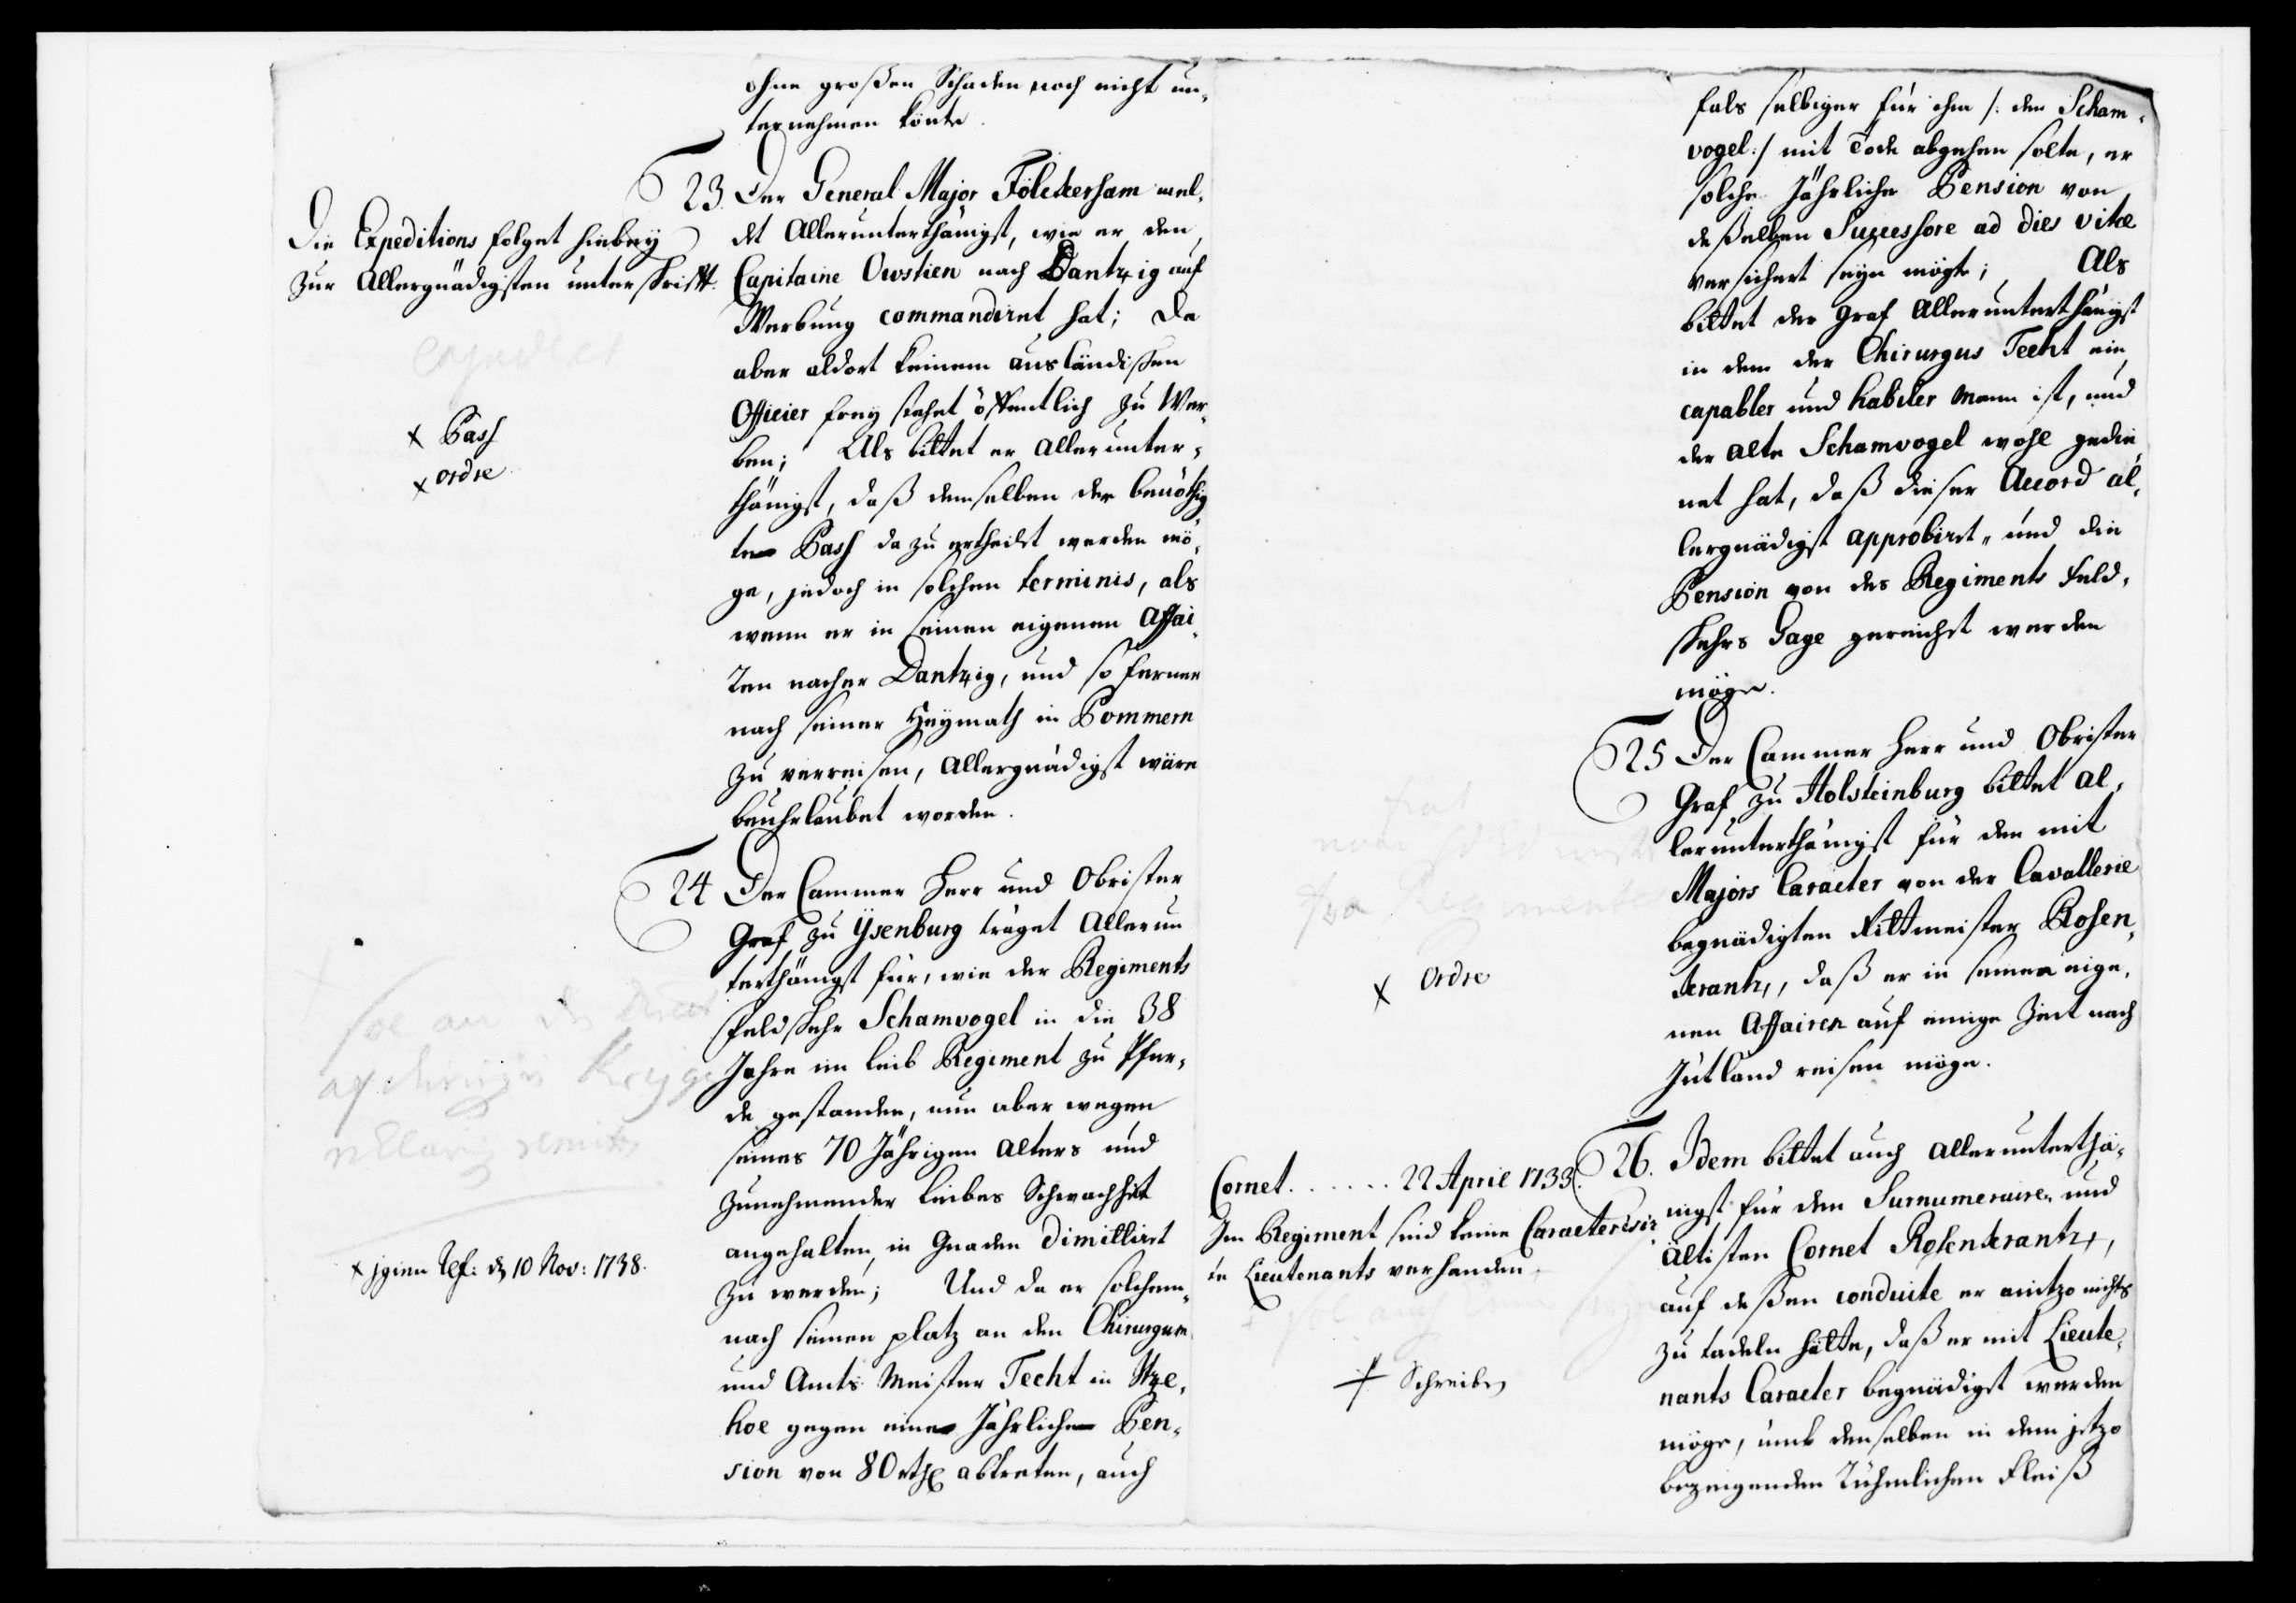 ohne großen Schaden noch nicht un-
ternehmen könte.
23. Der General Major Fölckersham mel-
det Allerunterthänigst, wie er den
Capitaine Owstien nach Dantzig auf
Werbung commandiret hat; Da
aber aldort keinem ausländischen
Officier frey stehet öffentlich zu Wer-
ben; Als bittet er Allerunter-
thänigst, daß demselben der benöthig
te Pass dazu ertheilet werden mö-
ge, jedoch in solchen terminis, als
wenn er in seinen eigenen Affai-
ren nacher Dantzig, und so ferner
nach seiner Heymath in Pommern
zu verreisen, Allergnädigst wäre
beuhrlaubet worden.
Die Expeditions folget hiebey
zur Allergnädigsten unterschrifft.
expedirt
x Pass
x ordre
24 Der Cammer Herr und Obrister
Graf zu Ysenburg träget Allerun
terthänigst für, wie der Regiments
Feldscher Schamvogel in die 38
Jahre im Leib Regiment zu Pfer-
de gestanden, nun aber wegen
seines 70 Jährigen Alters und
zunehmender Leibes Schwachheit
angehalten, in Gnaden dimittirt
zu werden; Und da er solchem-
nach seinen platz an den Chirurgum
und Amts Meister Techt in Itze-
hoe gegen eine Jährliche Pen-
sion von 80 rthl abtreten, auch
x igien Ref: d 10 Nov: 1738.
fals selbiger für ihm /: den Scham-
vogel :/ mit Tode abgehen solte, er
solche Jährliche Pension von
deßelben Successore ad dies vitae
versichert seyn mögte; Als
bittet der Graf Allerunterthänigst
in dem der Chirurgus Techt ein
capabler und habiler Mann ist, und
der alte Schamvogel wohl gedie
net hat, daß dieser Accord al-
lergnädigst approbirt, und die
Pension von des Regiments Feld-
schers Gage gereichet werden
möge.
25 Der Cammer Herr und Obrister
Graf zu Holsteinburg bittet al-
lerunterthänigst für den mit
Majors Caracter von der Cavallerie
begnadigten Rittmeister Rosen-
krantz, daß er in seinen eige-
nen Affairen auf einige Zeit nach
Jütland reisen möge.
x Ordre
26. Idem bittet auch Allerunterthä-
nigst für den Surnumerairen und
ältisten Cornet Rosenkrantz,
auf deßen conduite er anitzo nichts
zu tadeln hätte, daß er mit Lieute-
nants Caracter begnadiget werden
möge, umb denselben in dem jetzo
bezeigenden rühmlichen Fleiß
Cornet . . . . . . 22 April 1733.
Im Regiment sind keine Caracterisir-
te Lieutenants verhanden.
+ Schreiben